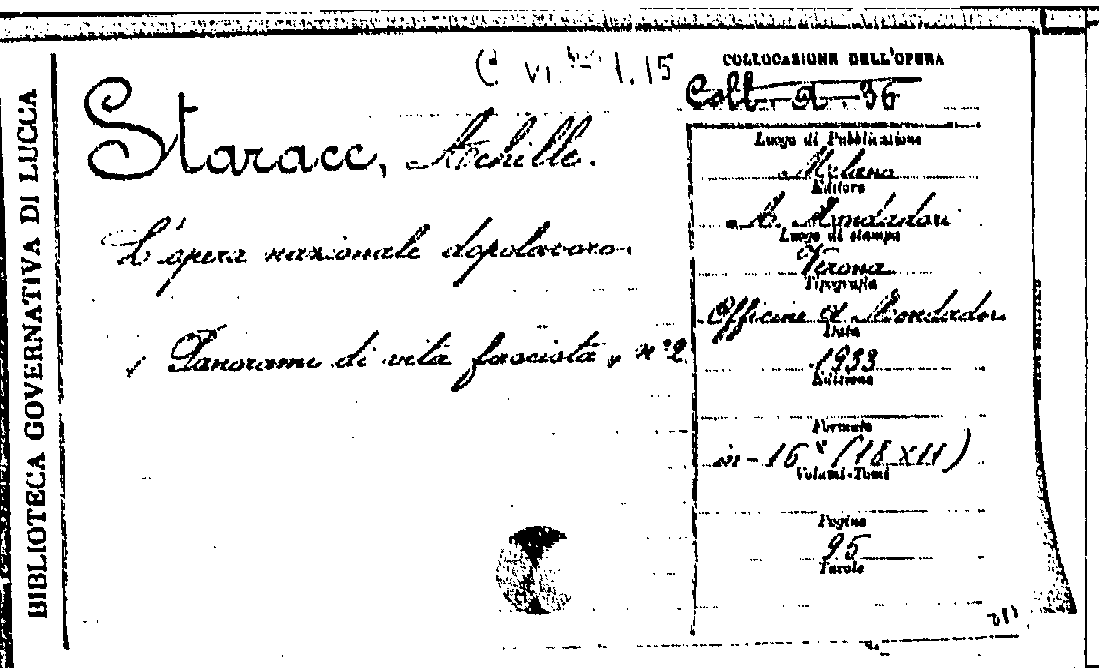 BIBLIOTECA GOVERNATIVA DI LUCCA
C VI. 1.15
Starace, Achille.
L'opera nazionale dopolavoro.
Panorami di vita fascista, n° 2
COLLOCAZIONE DELL'OPERA
Coll. A. 36
Luogo di Pubblicazione
Milano
Editore
A. Mondadori
Luogo di stampa
Verona
Tipografia
Officine A. Mondadori
Data
1933
Edizione
Formato
in-16° (18x11)
Volumi-Tomi
Pagine
95
Tavole